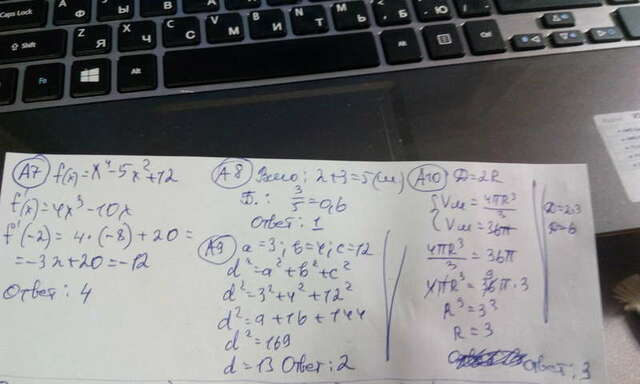 Caps Lock
A Ф
S Ы
Shift
Z Я
X Ч
C С
V М
B И
N Т
M Ь
Б
Ю
Fn
Alt
Alt
Ctrl
A7 f(x)=x⁴-5x²+12
f'(x)=4x³-10x
f'(-2)=4·(-8)+20=
=-32+20=-12
Ответ: 4
A8 Всего: 2+3=5(м)
Б.: 3/5=0,6
Ответ: 1
A9 a=3; b=4; c=12
d²=a²+b²+c²
d²=3²+4²+12²
d²=9+16+144
d²=169
d=13 Ответ: 2
A10 D=2R
Vш=4πR³/3
Vш=36π
4πR³/3=36π
4πR³=36π·3
9
R³=3³
R=3
Ответ: 3
D=2·3
D=6